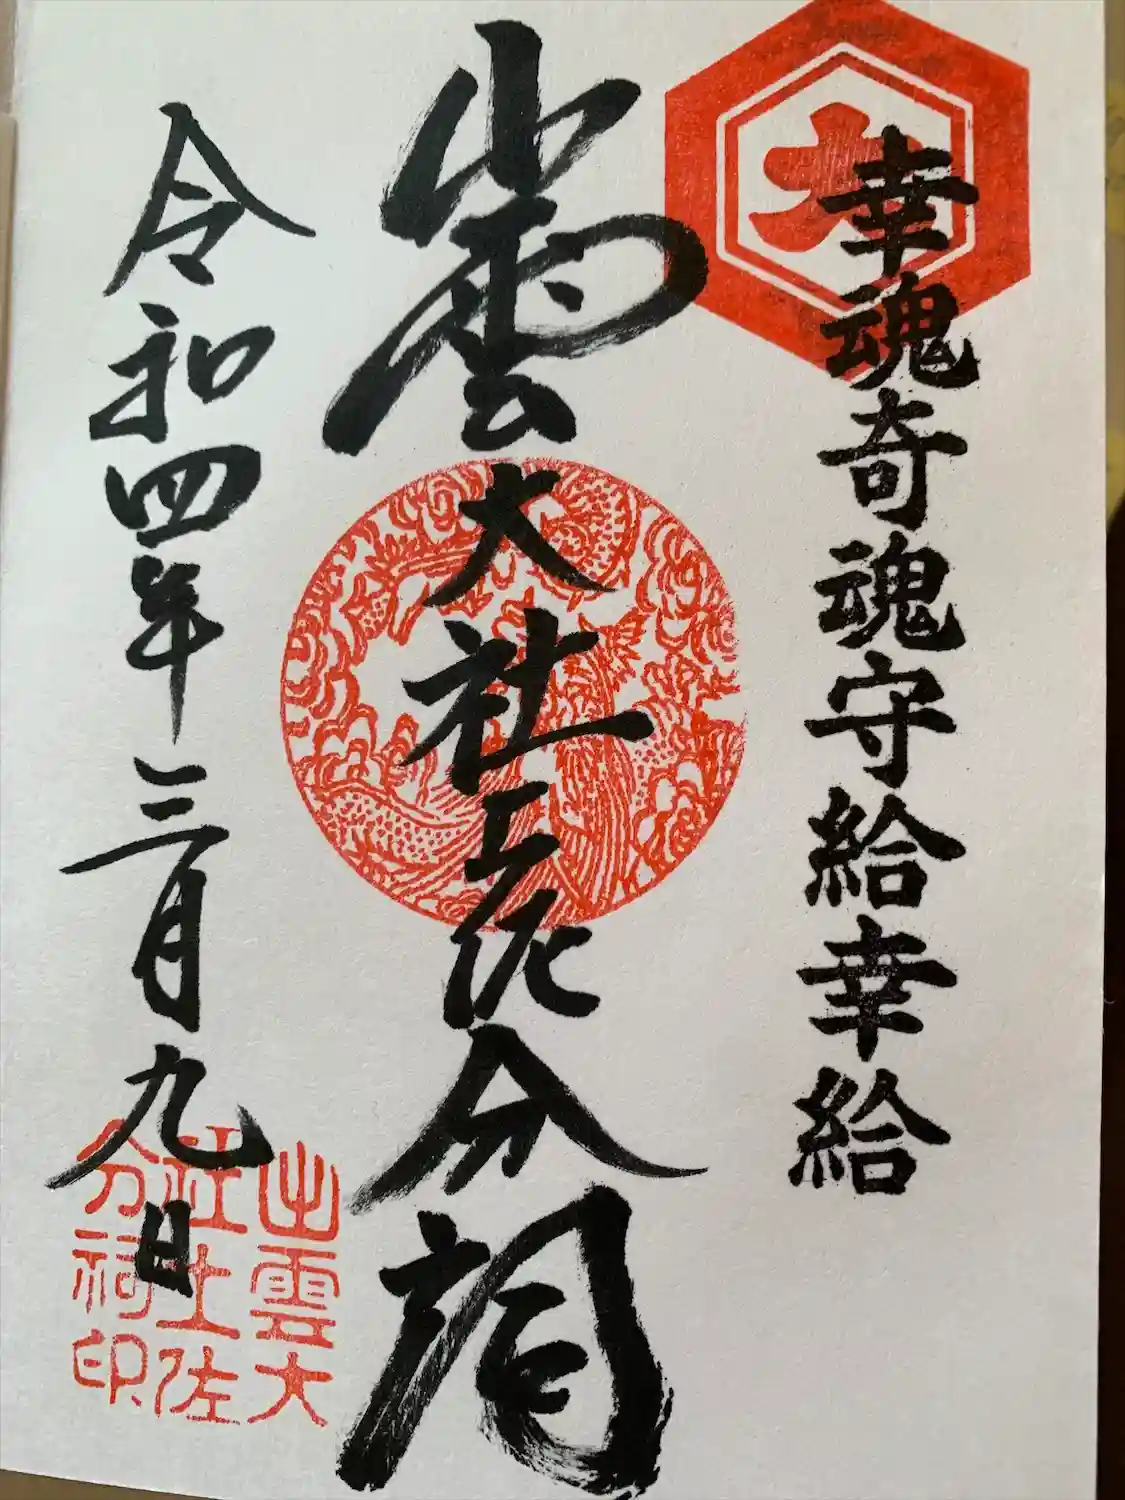 大
幸魂奇魂守給幸給
出雲大社土佐分祠
令和四年三月九日
出雲大
社土佐
分祠印